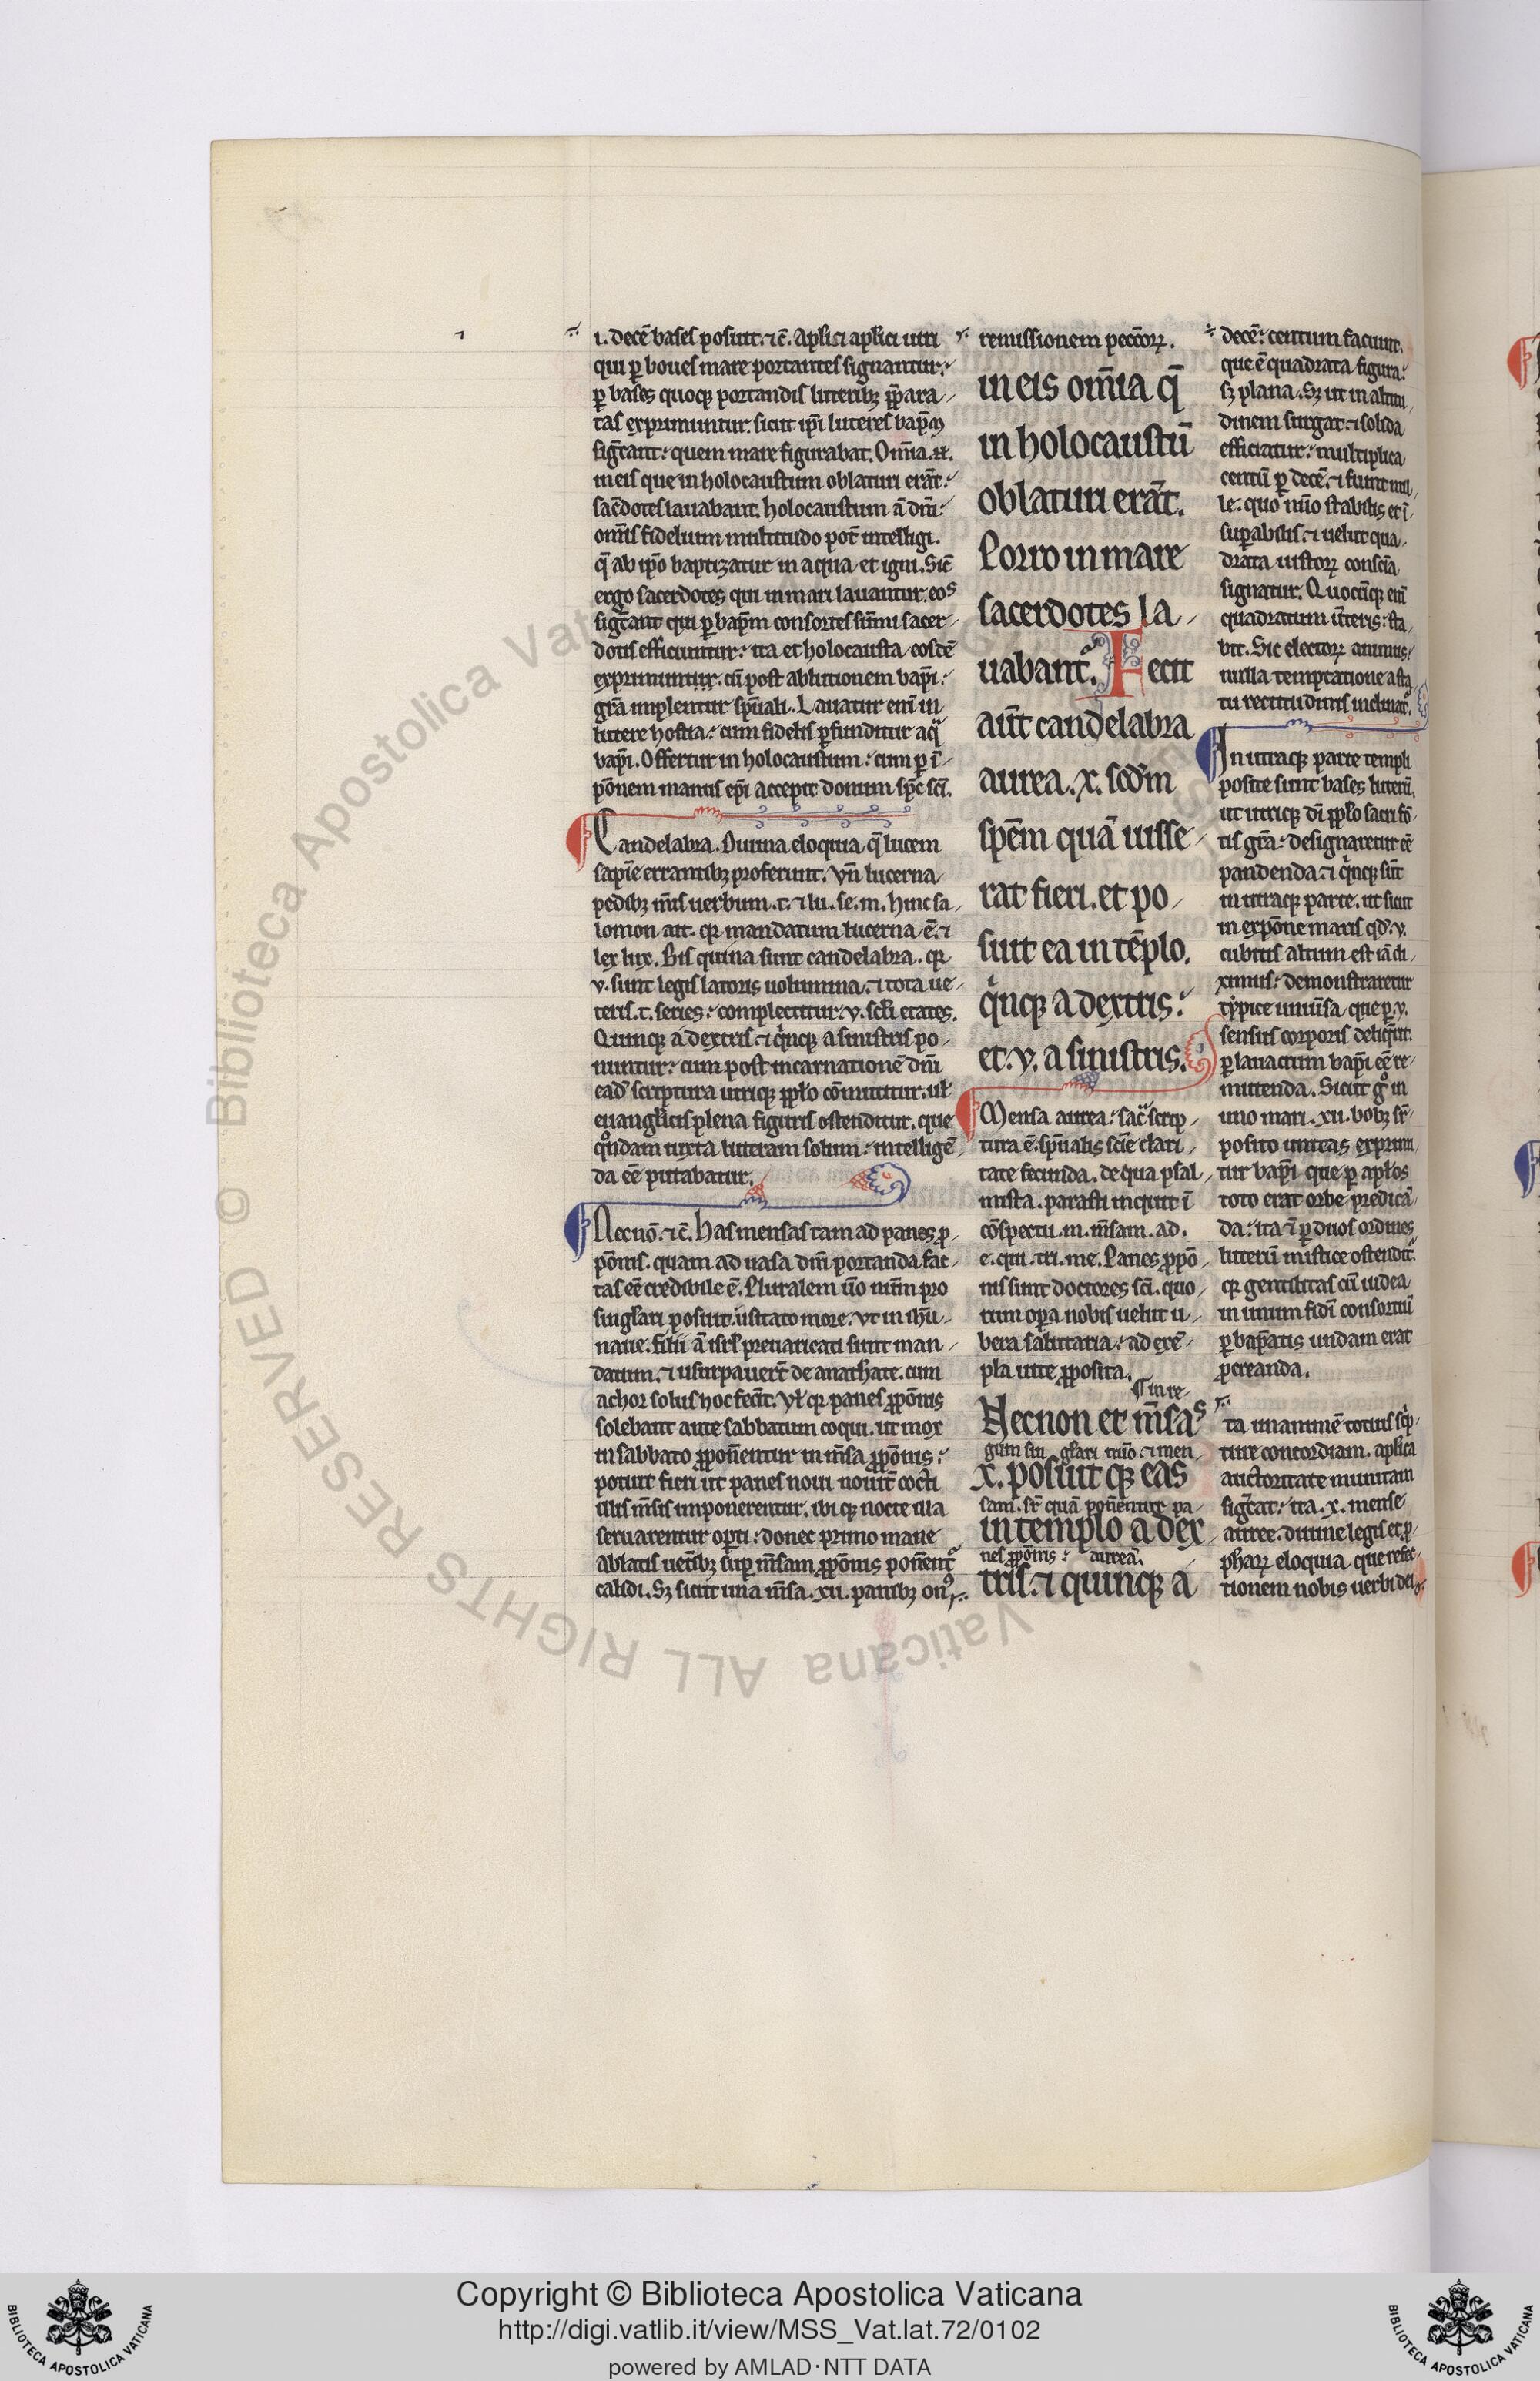 ı. decē bases posuit. ⁊ c̄. Apl̄i ⁊ apl̄ici uiri
qui ꝑ boues mare portantes signantur.
ꝑ bases quoqꝫ portandis luteribꝫ p̄para
tas exprimuntur. sicut ip̄i luteres bap̄m
sig̅cant. quem mare figurabat. Om̄ia .n̄.
in eis que in holocaustum oblaturi erāt.
sac̄dotes lauabant. holocaustum ā dn̄i.
om̄is fidelium multitudo pot̄ intelligi.
q̄ ab ip̄o baptizatur in aqua et igni. Sic̄
ergo sacerdotes qui in mari lauantur. eos
sig̅cant qui ꝑ bap̄m consortes sūmi sacer
dotis efficiuntur. ita et holocausta eosdē
exprimuntur. cū post ablutionem bap̄i.
gr̄a implentur sp̄uali. Lauatur eni in
lutere hostia. cum fidelis ꝑfunditur aq̄
bap̄i. Offertur in holocaustum. cum ꝑ ī
pōnem manus ep̄i accepit donum sp̄c sc̄i.
Candelabra. Diuina eloquia q̄ lucem
sapīe errantibꝫ proferunt. Vn̄ lucerna
pedibꝫ m̄is uerbum .t. ⁊ lu. se. m. hinc sa
lomon ait. qꝛ mandatum lucerna ē. ⁊
lex lux. Bis quina sunt candelabra. qꝛ
v. sunt legis latoris uolumina. ⁊ tota ue
teris .t. series. complectitur. v. scl̄i etates.
Quinqꝫ a dextris. ⁊ q̇nqꝫ a sinistris po
nuntur. cum post incarnationē dn̄i
ead̄ scriptura utriqꝫ ppl̄o cōmittitur. ul̄
euangl̄icis plena figuris ostenditur. que
q̊ndam iuxta litteram solum. intelligē
da eē putabatur.
Necnō. ⁊ c̄. has mensas tam ad panes ꝓ
pōnis. quam ad uasa dn̄i portanda fac
tas eē credibile ē. Pluralem ūo num̄ pro
singl̄ari posuit. usitato more. vt in ih̄u
naue. filii ā isrl̄ preuaricati sunt man
datum. ⁊ usurpauer̄t de anathate. cum
achor solus hoc fecīt. Vl̄ qꝛ panes ꝓpōnis
solebant ante sabbatum coqui. ut mox
in sabbato ꝓpon̄entur in m̄sa ꝓpōnis.
potuit fieri ut panes noui nouit̄ cocti
illis m̄sis imponerentur. ibi qꝫ nocte illa
seruarentur oꝑti. donec primo mane
ablatis uet̄ibꝫ suꝑ m̄sam ꝓpōnis ponent̊
calidi. Sꝫ sicut una m̄sa .xii. panibꝫ on
remissionem pecc̄orꝝ.
in eis om̄ia q̄
in holocaustū
oblaturi erāt.
Porro in mare
sacerdotes la
uabant̊. Fecit
aūt candelabra
aurea .x. scd̄m
spēm quā iusse
rat fieri. et po
suit ea in tēplo.
q̇nqꝫ a dextris.
et .v. a sinistris.
Mensa aurea. sac̄ scrip
tura ē. sp̄ualis scīe clari
tate fecunda. de qua psal
mista. parasti inquit ī
cōspectu .m. m̄sam. ad.
e. qui. tri. me. Panes ꝓpō
nis sunt doctores sc̄i. quo
rum oꝑa nobis uelut u
bera salutaria. ad exē
pla uite ꝓposita.
¶ in re
Necnon et m̄sas
gum sin gl̄ari nūo. ⁊ men
x. posuit qꝫ eas
sam. sr̄ quā pon̄entur pa
in templo a dex
nes ꝓpōnis. aureā.
tris. ⁊ quinqꝫ a
decē. centum faciunt.
que ē quadrata figura.
sꝫ plana. Sꝫ ut in altitu
dinem surgat. ⁊ solida
efficiatur. multiplica
centū ꝑ decē. ⁊ fiunt mil
le. quo nūo stabilis et ī
suꝑabilis. ⁊ uelut qua
drata iustorꝝ conscīa
signatur. Quocūqꝫ enī
quadratum ūteris. sta
bit. Sic electorꝝ animus.
nulla temptatione a sta
tu rectitudinis inclinat̊.
In utraqꝫ parte templi
posite sunt bases luterū.
ut utriqꝫ dī ppl̄o sacri fō
tis gr̄a. designaretur eē
pandenda. ⁊ q̇nqꝫ sūt
in utraqꝫ parte. ut sicut
in expōne maris qd̄ .v.
cubitis altum est iā di
ximus. demonstraretur
typice uniūsa que ꝑ .v.
sensus corporis deliq̄rit.
ꝑ lauacrum bap̄i eē re
mittenda. Sicut g̊ in
uno mari .xii. bobꝫ sr̄
posito unitas exprimi
tur bap̄i que ꝑ apl̄os
toto erat orbe predicā
da. ita ⁊ ꝑ duos ordines
luterū mistice ostendit̊.
qꝛ gentilitas cū iudea
in unum fidī consortiū
ꝑ bap̄atis undam erat
ꝓcreanda.
ta unanimē totius sc̄p
ture concordiam. apl̄ica
auctoritate munitam
sig̅cat. ita .x. mense
auree. diuine legis et ꝓ
pharꝝ eloquia que refec
tionem nobis uerbi dei
Copyright © Biblioteca Apostolica Vaticana
http://digi.vatlib.it/view/MSS_Vat.lat.72/0102
powered by AMLAD·NTT DATA
BIBLIOTECA APOSTOLICA VATICANA
BIBLIOTECA APOSTOLICA VATICANA
© Biblioteca Apostolica Vaticana ALL RIGHTS RESERVED